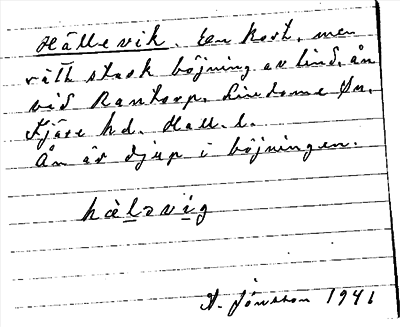 Hällevik. En kort, men
rätt stark böjning av Lind. ån
vid Rantorp, Lindome sn,
Fjäre hd. Hall. l.
Ån är djup i böjningen.
hàlǝvig
A. Jónsson 1941